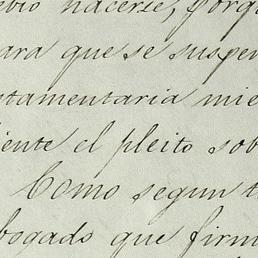 ebió hacerse, porqu
para que se suspen
stamentaria mie
iente el pleito sob
Como segun t
bogado que firm